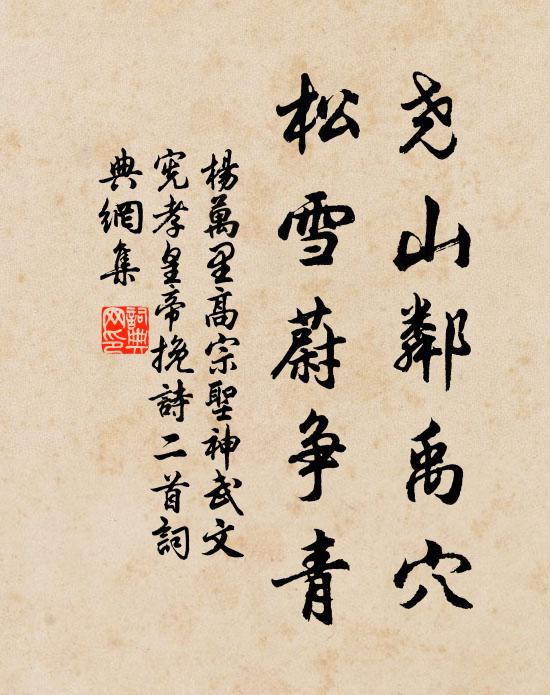 尧山鄰禹穴
松雪蔚争青
楊萬里高宗聖神武文
宪孝皇帝挽詩二首詞
典網集
詞典
网印